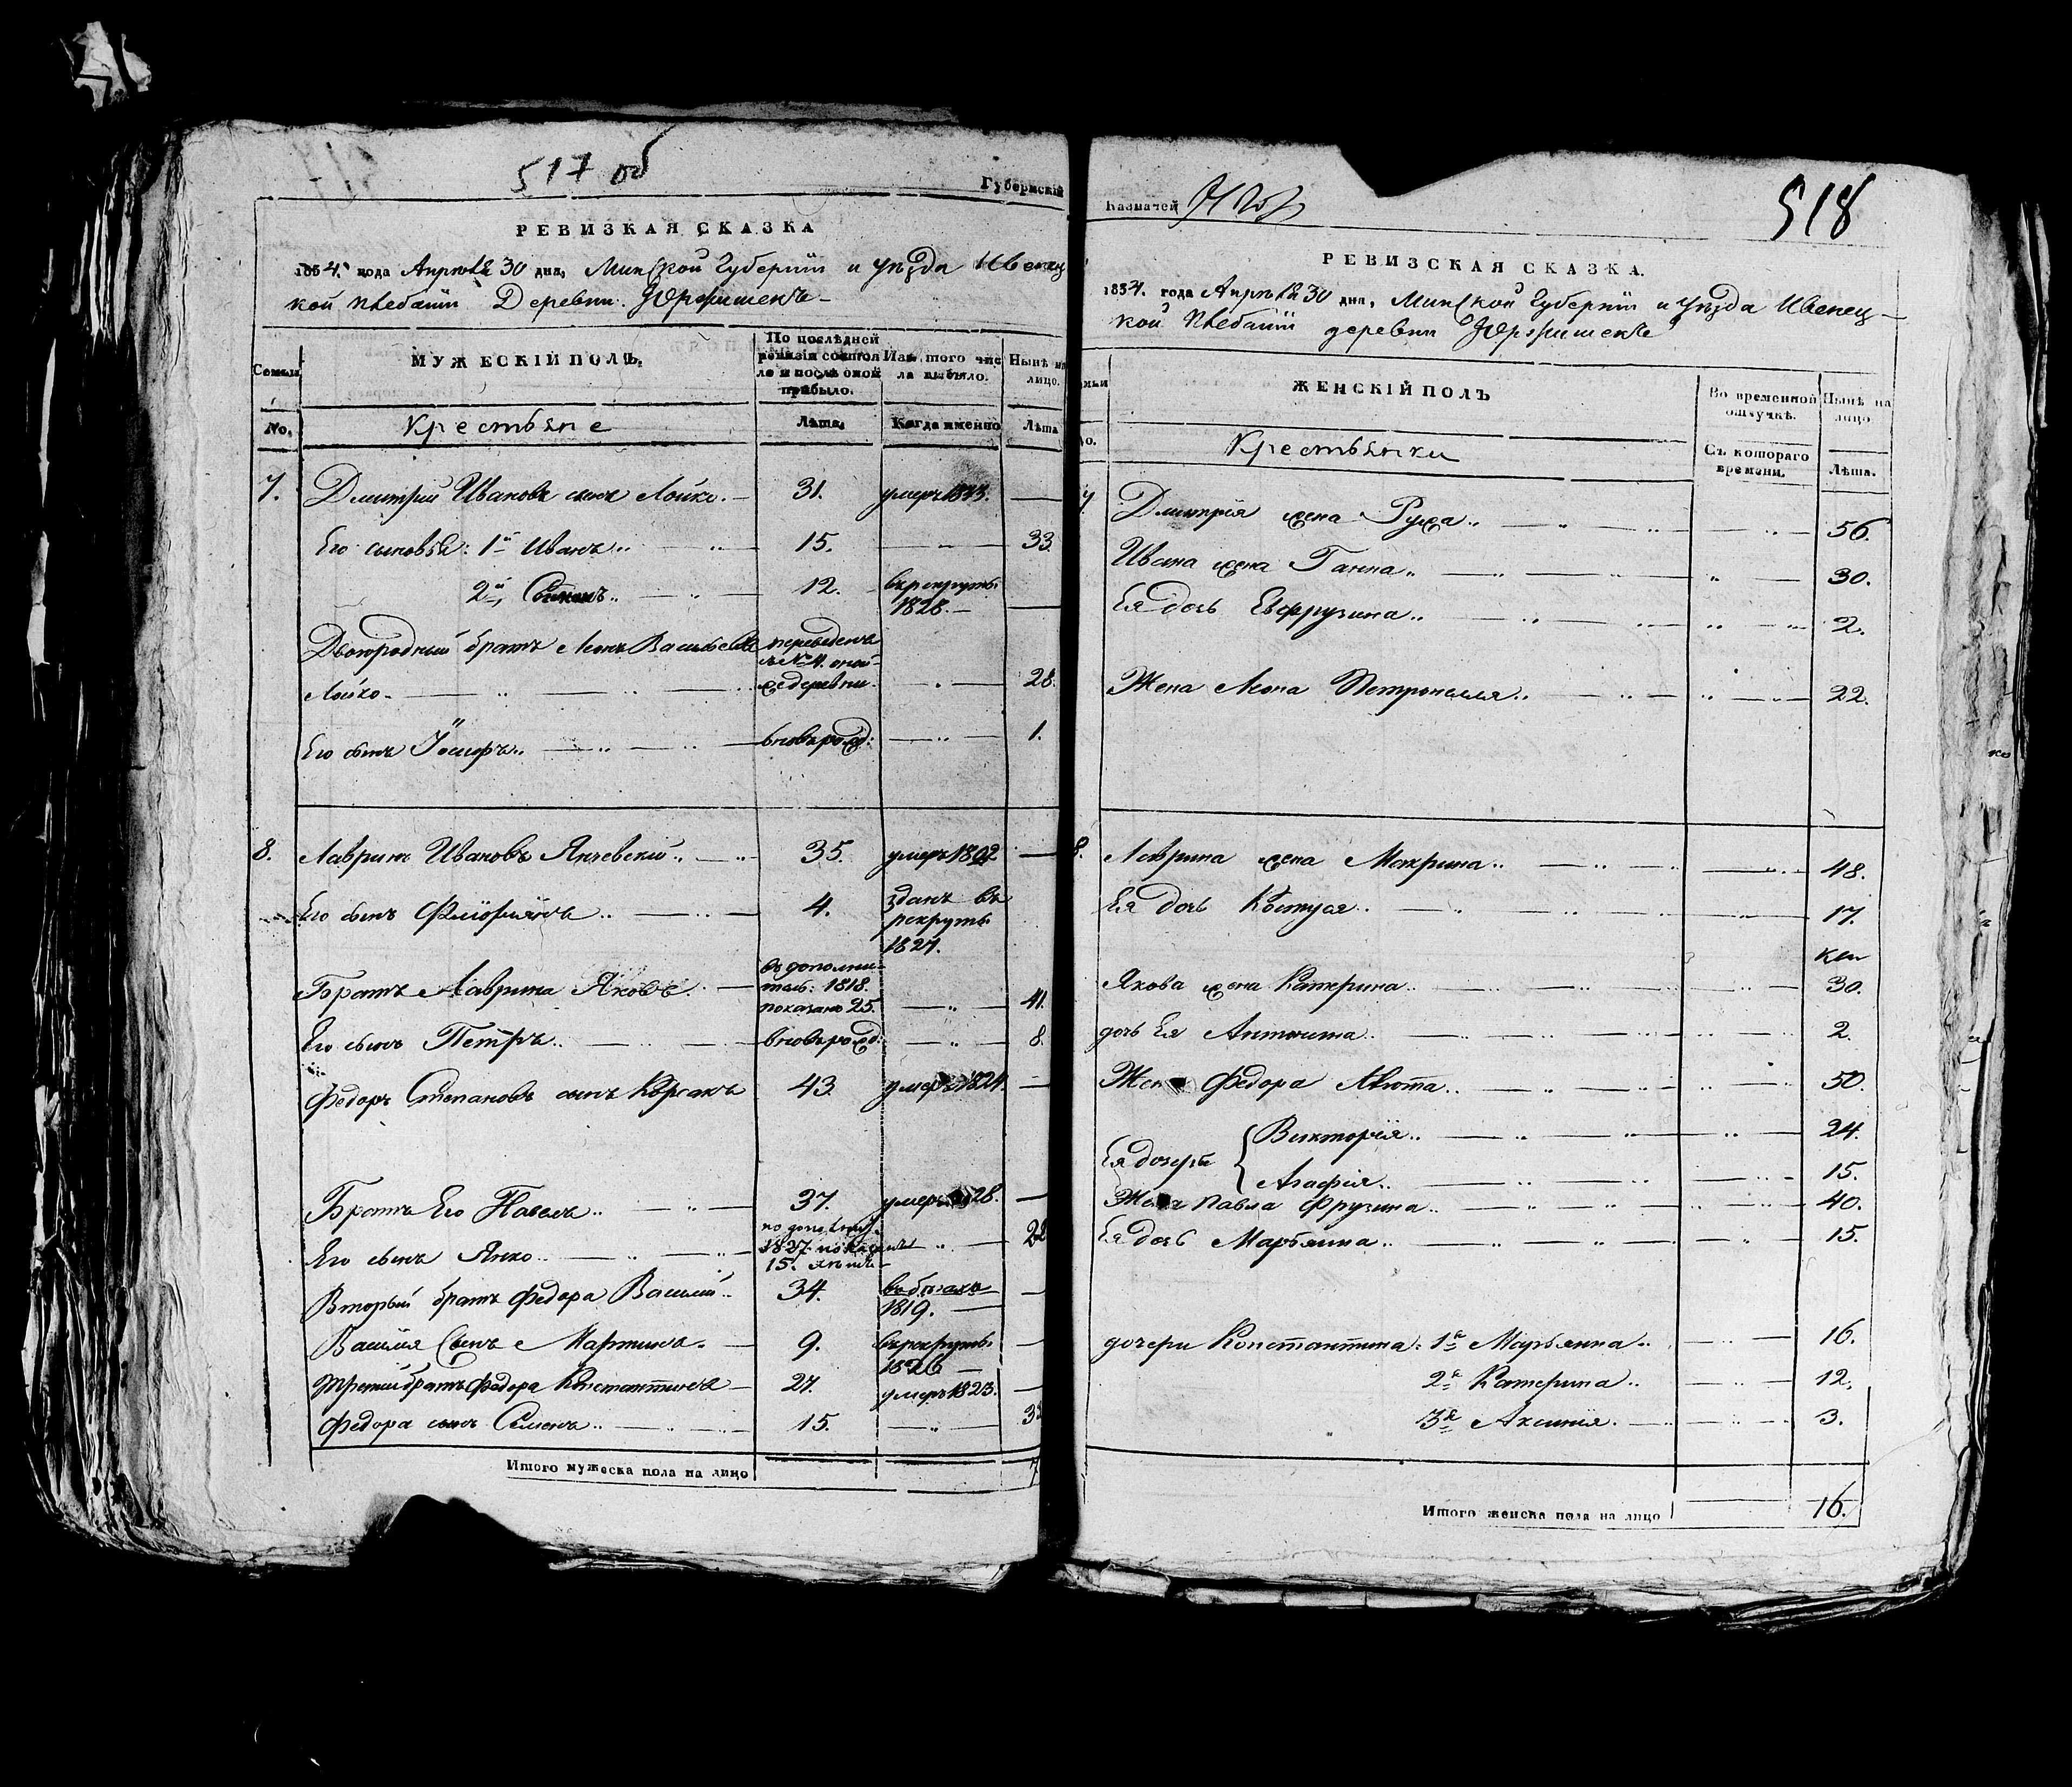 517 об
Губернскій
РЕВИЗКАЯ СКАЗКА
1834. года Апрѣля 30 дня, Минской Губерніи и уѣзда Ивенец
кой плебаніи Деревни Юржишекъ
Семьи
МУЖЕСКІЙ ПОЛЪ.
По послѣдней
ревизіи состоя
ло и послѣ оной
прибыло.
Изъ того чис
ла выбыло.
Нынѣ на
лицо.
No.
Крестьяне
Лѣта.
Когда именно
Лѣта
7. Дмитрій Ивановъ сынъ Лойко. 31. умеръ
Его сыновья: 1й Иванъ 15. 33.
2й 12. въ рекруты
1828.
Двоюродный братъ Леонъ Васильевъ переведенъ
съ № 4. оной
Лойко жедеревни 28.
Его сынъ Іосифъ вновьрожд: 1.
8. Лавринъ Ивановъ Янчевскій 35. умеръ
Его сынъ Флоріянъ 4. зданъ въ
рекруты
1827.
Братъ Лаврина Яковъ въ дополни-
тель: 1818.
показано 25. 41.
Его сынъ Петръ вновьрожд: 8.
Федоръ Степановъ сынъ Корсакъ 43. умеръ 1824.
Братъ Его Павелъ 37. умеръ 28.
Его сынъ Янко
1827. показанъ
15. лѣтъ 22
Вторый братъ Федора Василій 34. въ бѣгахъ
1819.
Василія Сынъ Мартинъ 9. въ рекруты
1826
третій братъ Федора Константинъ 27. умеръ 1823.
Федора сынъ Семенъ 15. 3
Итого мужеска пола на лицо 7
Казначей
518
РЕВИЗСКАЯ СКАЗКА.
1834. года Апрѣля 30 дня, Минской Губерніи и уѣзда Ивенец-
кой Плебаніи деревни Юржишекъ
ЖЕНСКІЙ ПОЛЪ
Во временной
отлучкѣ.
Нынѣ на
лицо
Крестьянки
Съ котораго
времени.
Лѣта.
7 Дмитрія жена Ружа 56.
Ивана жена Ганна 30.
Ея дочь Евфрузина 2.
Жена Леона Петронеля 22.
8. Лаврина жена Макрина 48.
Ея дочь Костуся 17.
Якова жена Катерина 30.
дочь Ея Антонина 2.
Жена Федора Авюта 50.
Ея дочери { Викторія 24.
Агафія 15.
Жена Павла Фрузина 40.
Ея дочь Марьянна 15.
дочери Константина: 1я Марьянна 16.
2я Катерина 12.
3я Аксинія. 3.
Итого женска пола на лицо 16.